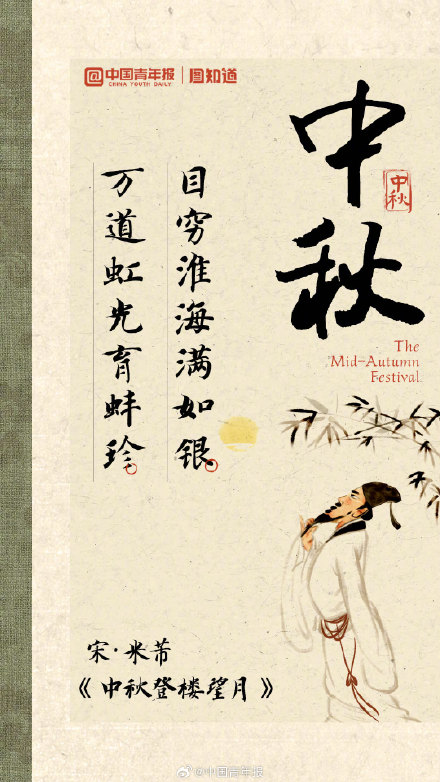 @中国青年报 图知道
CHINA YOUTH DAILY
中秋
中秋
The
Mid-Autumn
Festival
目穷淮海满如银
万道虹光育蚌珍
宋·米芾
《中秋登楼望月》
@中国青年报